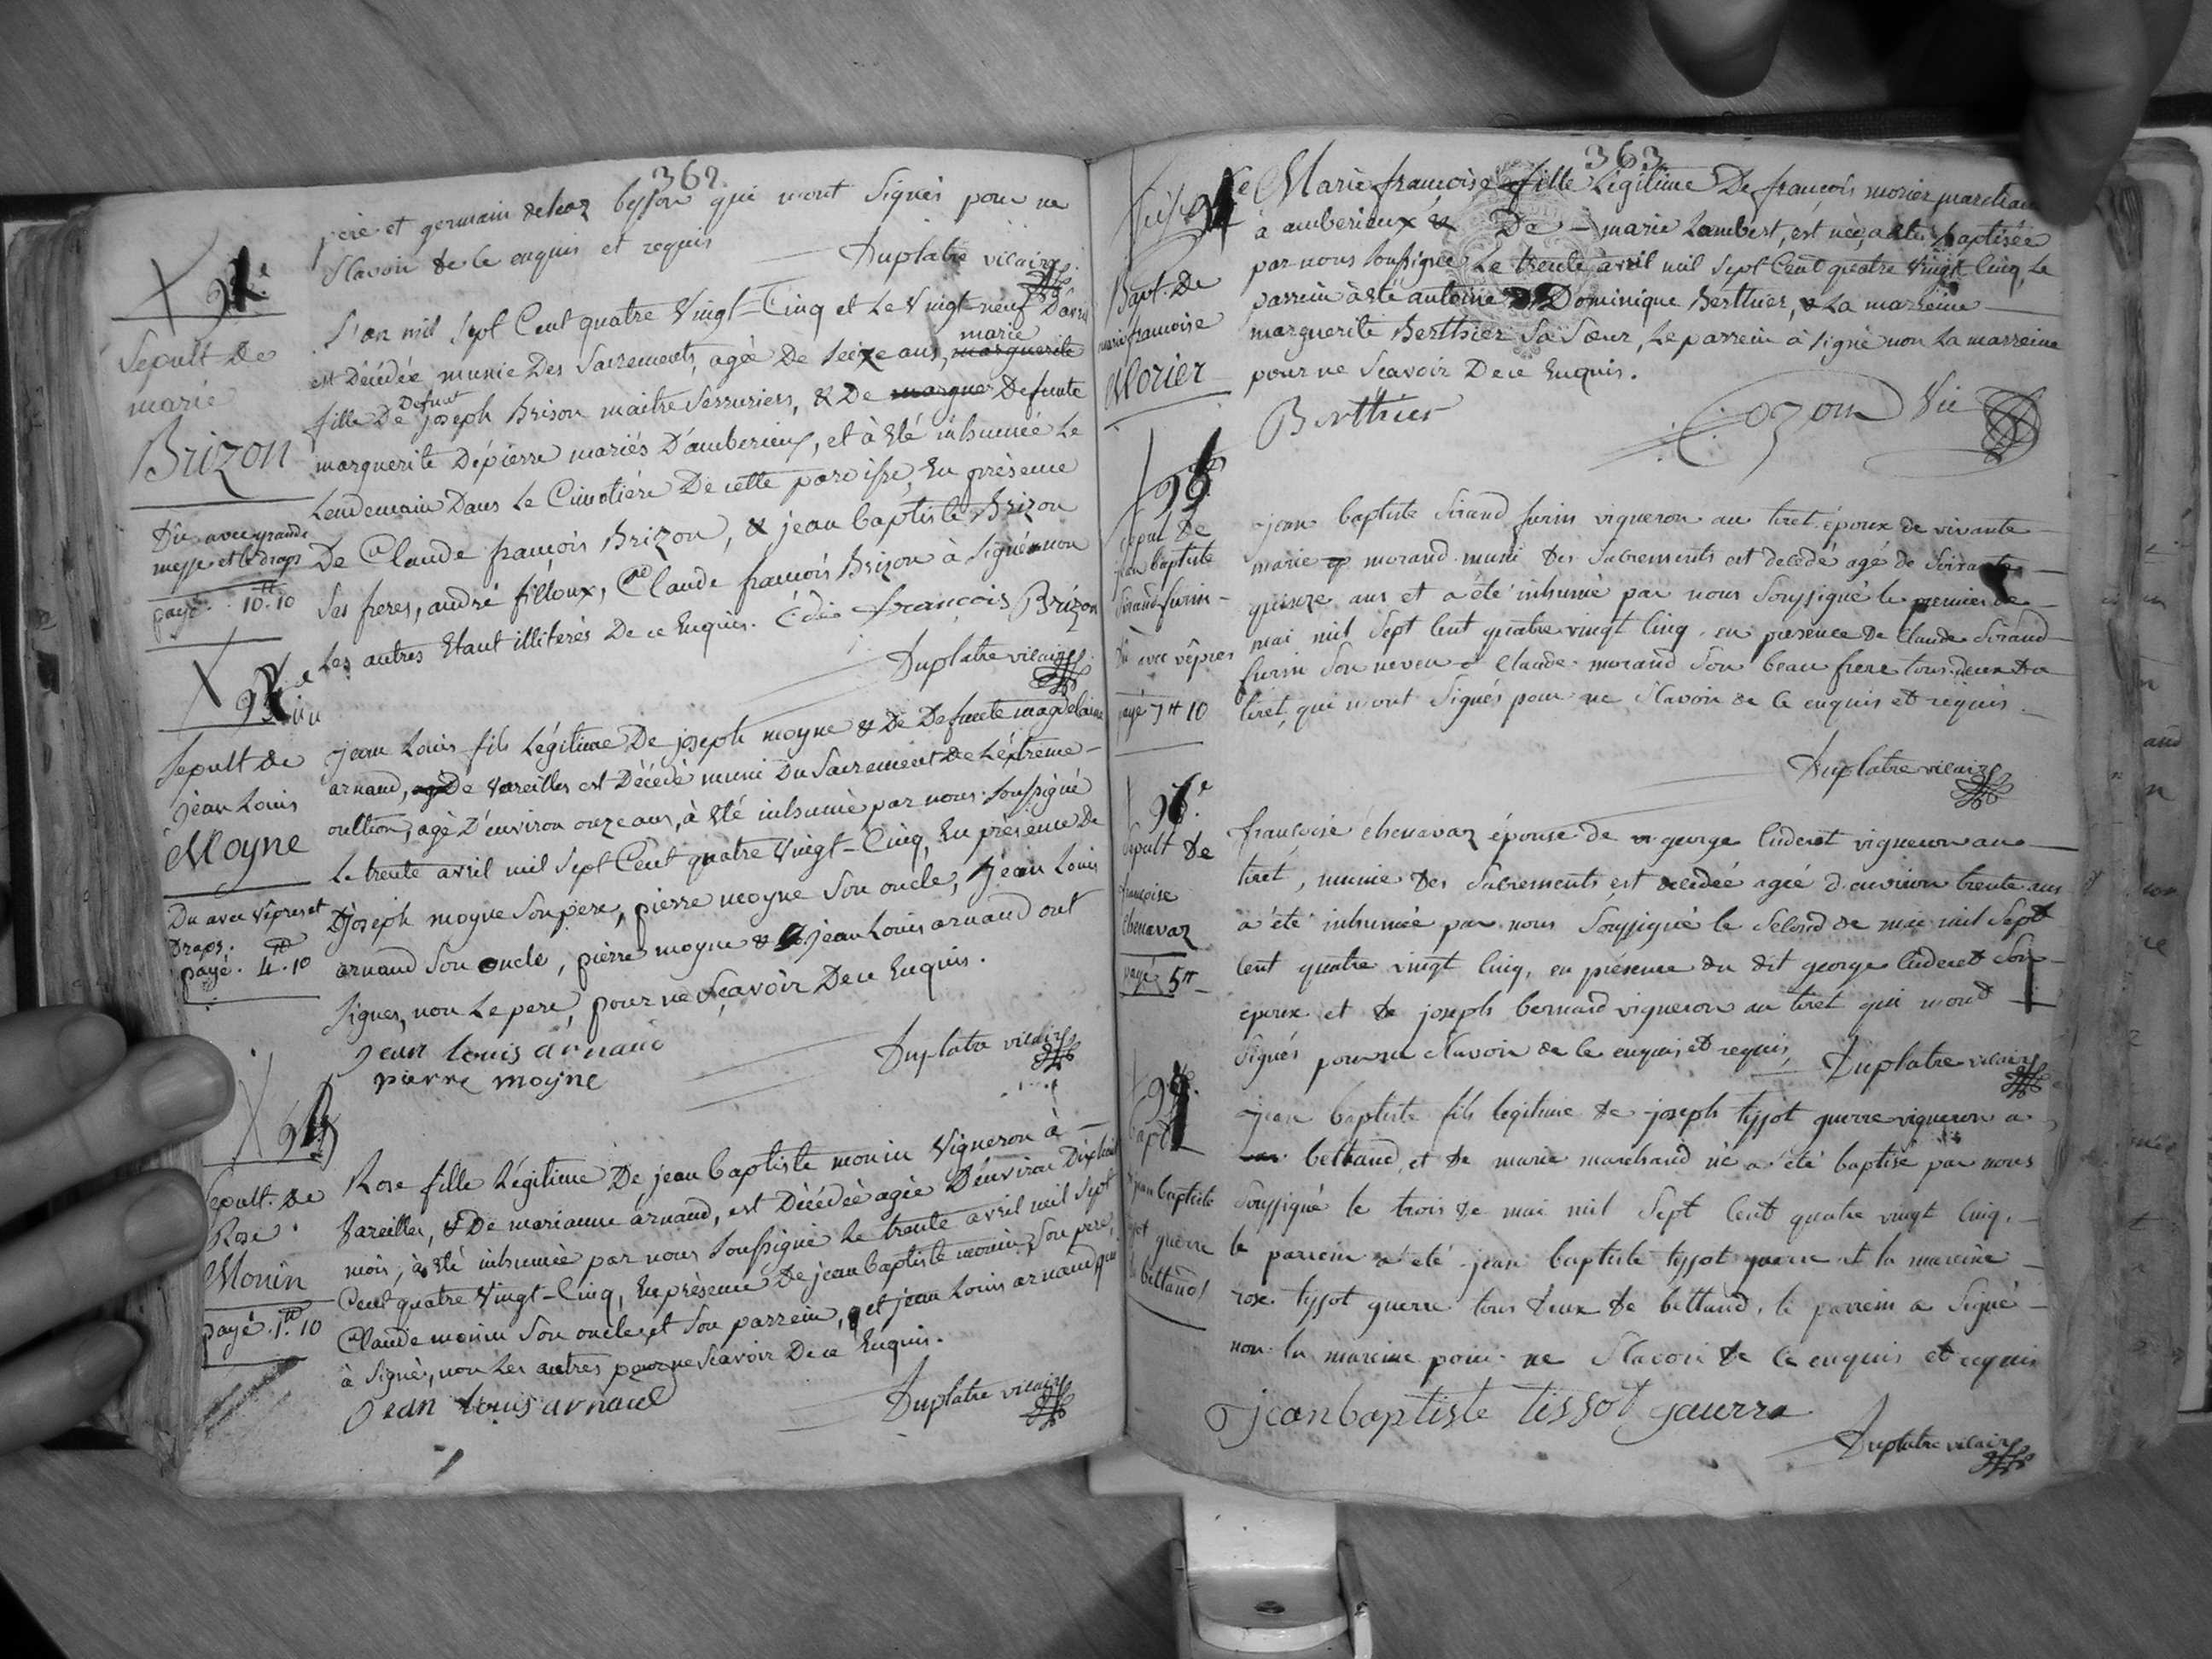 362
pere et germain dehoz besson qui n'ont signés pour ne
scavoir de ce enquis et requis
Duplatre vicaire
Sepult de
marie
Brizon
Dû avec grande
messe et le draps
payé . 10 ₶ 10
L'an mil sept Cent quatre Vingt-Cinq et Le Vingt-neuf D'avril
est Décédée munie Des Sacrements, agée De Seize ans, marie
fille De Defunt joseph Brison maitre Serruriers, & De Defunte
marguerite Dépierre mariés D'amberieux, et à été inhumée Le
Lendemain Dans Le Cimetiére De cette paroisse, En présence
De Claude françois Brizon, & jean baptiste Brizon
Ses freres, andré filloux, Claude françois Brizon à Signé non
Les autres Etant illiterés De ce Enquis. françois Brizon
Duplatre vicaire
Sepult de
jean Louis
Moyne
Du avec Vêpres et
Draps.
payé. 4 ₶ 10
jean Louis fils Légitime De joseph moyne & De Defunte magdelaine
arnaud, De Vareilles est Décedé muni Du Sacrement de L'éxtreme-
onction, agé D'environ onze ans, à été inhumé par nous soussigné
Le trente avril mil sept Cent quatre Vingt-Cinq, En présence De
joseph moyne Son pere, pierre moyne Son oncle, jean Louis
arnaud Son oncle, pierre moyne & jean Louis arnaud ont
Signes, non Le pere, pour ne Sçavoir De ce Enquis.
jean louis arnaud
pierre moyne
Duplatre vicaire
Sepult. de
Rose
Monin
payé. 1 ₶ 10
Rose fille Légitime De jean baptiste monin Vigneron à
Vareilles, & De marianne arnaud, est Décédée agée D'environ Dix huit
mois, à été inhumée par nous soussigné Le trente avril mil sept
Cent quatre Vingt-Cinq, En présence De jean baptiste monin Son pere,
Claude monin Son oncle et Son parrein, et jean Louis arnaud qui
à Signés, non Les autres pour ne Scavoir De ce Enquis.
Jean louis arnaud
Duplatre vicaire
363
Bapt. De
marie francoise
Morier
Marie françoise fille Légitime De françois morier marchand
à amberieux & De marie Lambert, est née, a été baptisée
par nous soussigné Le trente avril mil sept Cent quatre Vingt Cinq, Le
parrein à été antoine Dominique Berthier, & La marreine
marguerite Berthier Sa Sœur, Le parrein à signé non La marreine
pour ne Scavoir De ce Enquis.
Berthier
Cozon Vic
Sepul De
jean baptiste
Sirand furin
Dû avec vêpres
payé 7 ₶ 10
jean baptiste Sirand furin vigneron au tiret époux de vivante
marie morand muni des Sacrements est decedé agé de Soixante
quinze ans et a été inhumé par nous Soussigné le premier de
mai mil Sept Cent quatre vingt Cinq. en presence de Claude Sirand
furin Son neveu & Claude morand Son beau frere tous deux du
tiret, qui n'ont Signés pour ne Scavoir de Ce enquis et requis.
Duplatre vicaire
Sepult de
françoise
Chenavaz
payé 5 ₶
françoise Chenavaz épouse de george Cuderet vigneron au
tiret, munie des Sacrements, est decedée ageé d'environ trente ans
a été inhumée par nous Soussigné le Second de mai mil Sept
Cent quatre vingt Cinq, en présence du dit george Cuderet Son
epoux et de joseph bernard vigneron au tiret qui n'ont
Signés pour ne Scavoir de Ce enquis et requis
Duplatre vicaire
Bapt
jean baptiste
guerre
bettand
jean baptiste fils legitime de joseph tissot guerre vigneron a
bettand et de marie marchand né a été baptisé par nous
Soussigné le trois de mai mil Sept Cent quatre vingt Cinq.
le parrein a été jean baptiste tissot guerre et la mareine
rose tissot guerre tous deux de bettand, le parrein a Signé
non la mareine pour ne Scavoir de Ce enquis et requis
jean baptiste tissot guerre
Duplatre vicaire